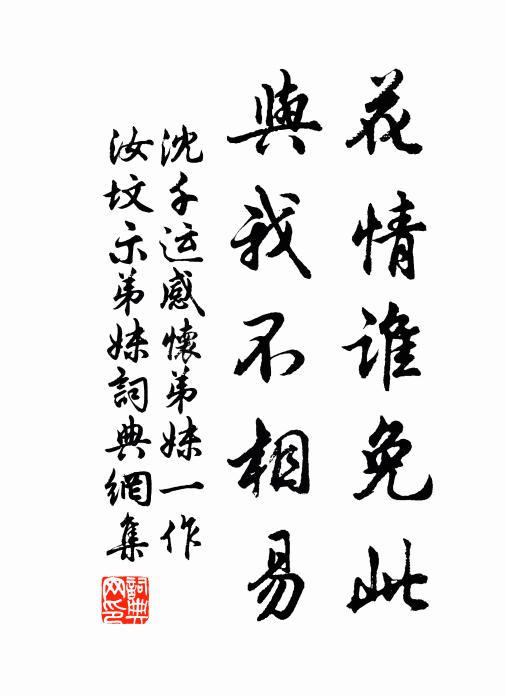 花情誰免此
與我不相易
沈千运感懷弟妹一作
汝墳示弟妹詞典網集
詞典网印